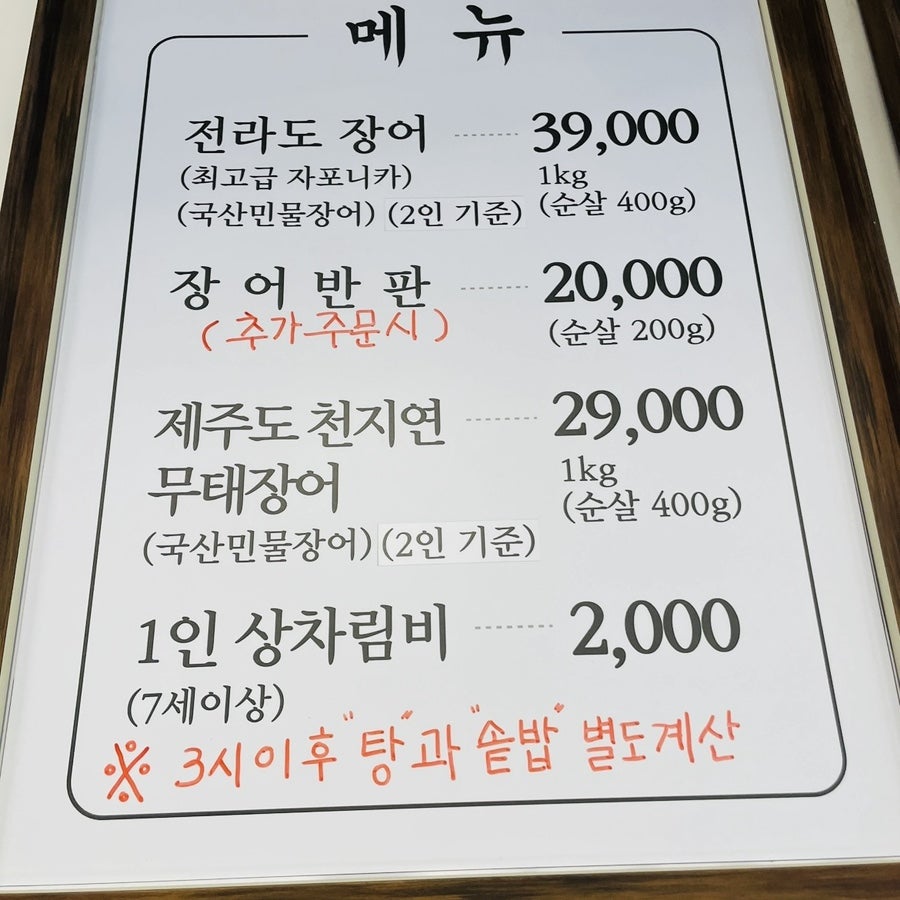 메 뉴
전라도 장어 ········ 39,000
(최고급 자포니카) 1kg
(국산민물장어) (2인 기준) (순살 400g)
장 어 반 판 ········ 20,000
(추가주문시) (순살 200g)
제주도 천지연 ········ 29,000
무태장어 1kg
(순살 400g)
(국산민물장어) (2인 기준)
1인 상차림비 ········ 2,000
(7세이상)
※ 3시이후 "탕"과 "솥밥" 별도계산